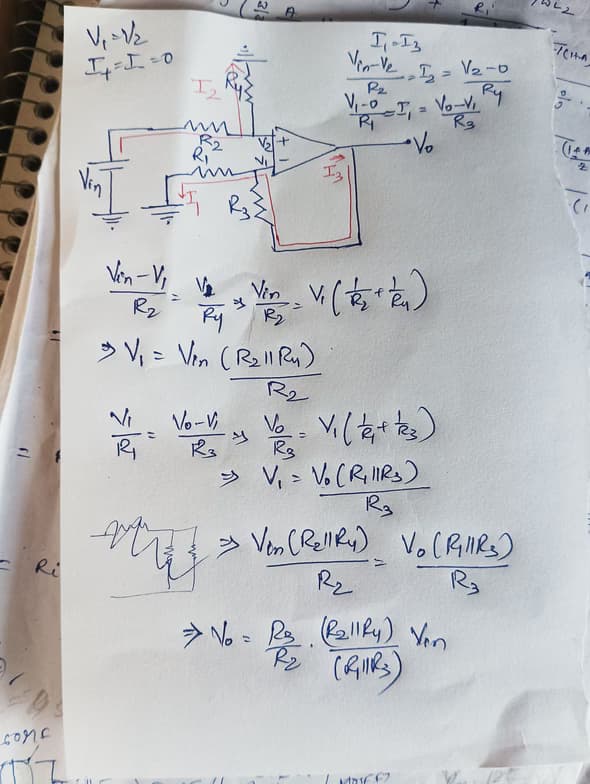 V₁=V₂
I₊=I₋=0
I₁=I₃
(Vin-V2)/R2 = I₂ = (V2-0)/R4
(V1-0)/R1 = I₁ = (Vo-V1)/R3
I₂
R4
R2
V2
+
Vo
R1
V1
-
Vin
I₁
R3
I₃
(Vin-V1)/R2 = V1/R4 ⇒ Vin/R2 = V1(1/R2+1/R4)
⇒ V1 = Vin (R2||R4)/R2
V1/R1 = (Vo-V1)/R3 ⇒ Vo/R3 = V1(1/R1+1/R3)
⇒ V1 = Vo(R1||R3)/R3
⇒ Vin(R2||R4)/R2 = Vo(R1||R3)/R3
Ri
⇒ Vo = R3/R2 · (R2||R4)/(R1||R3) Vin